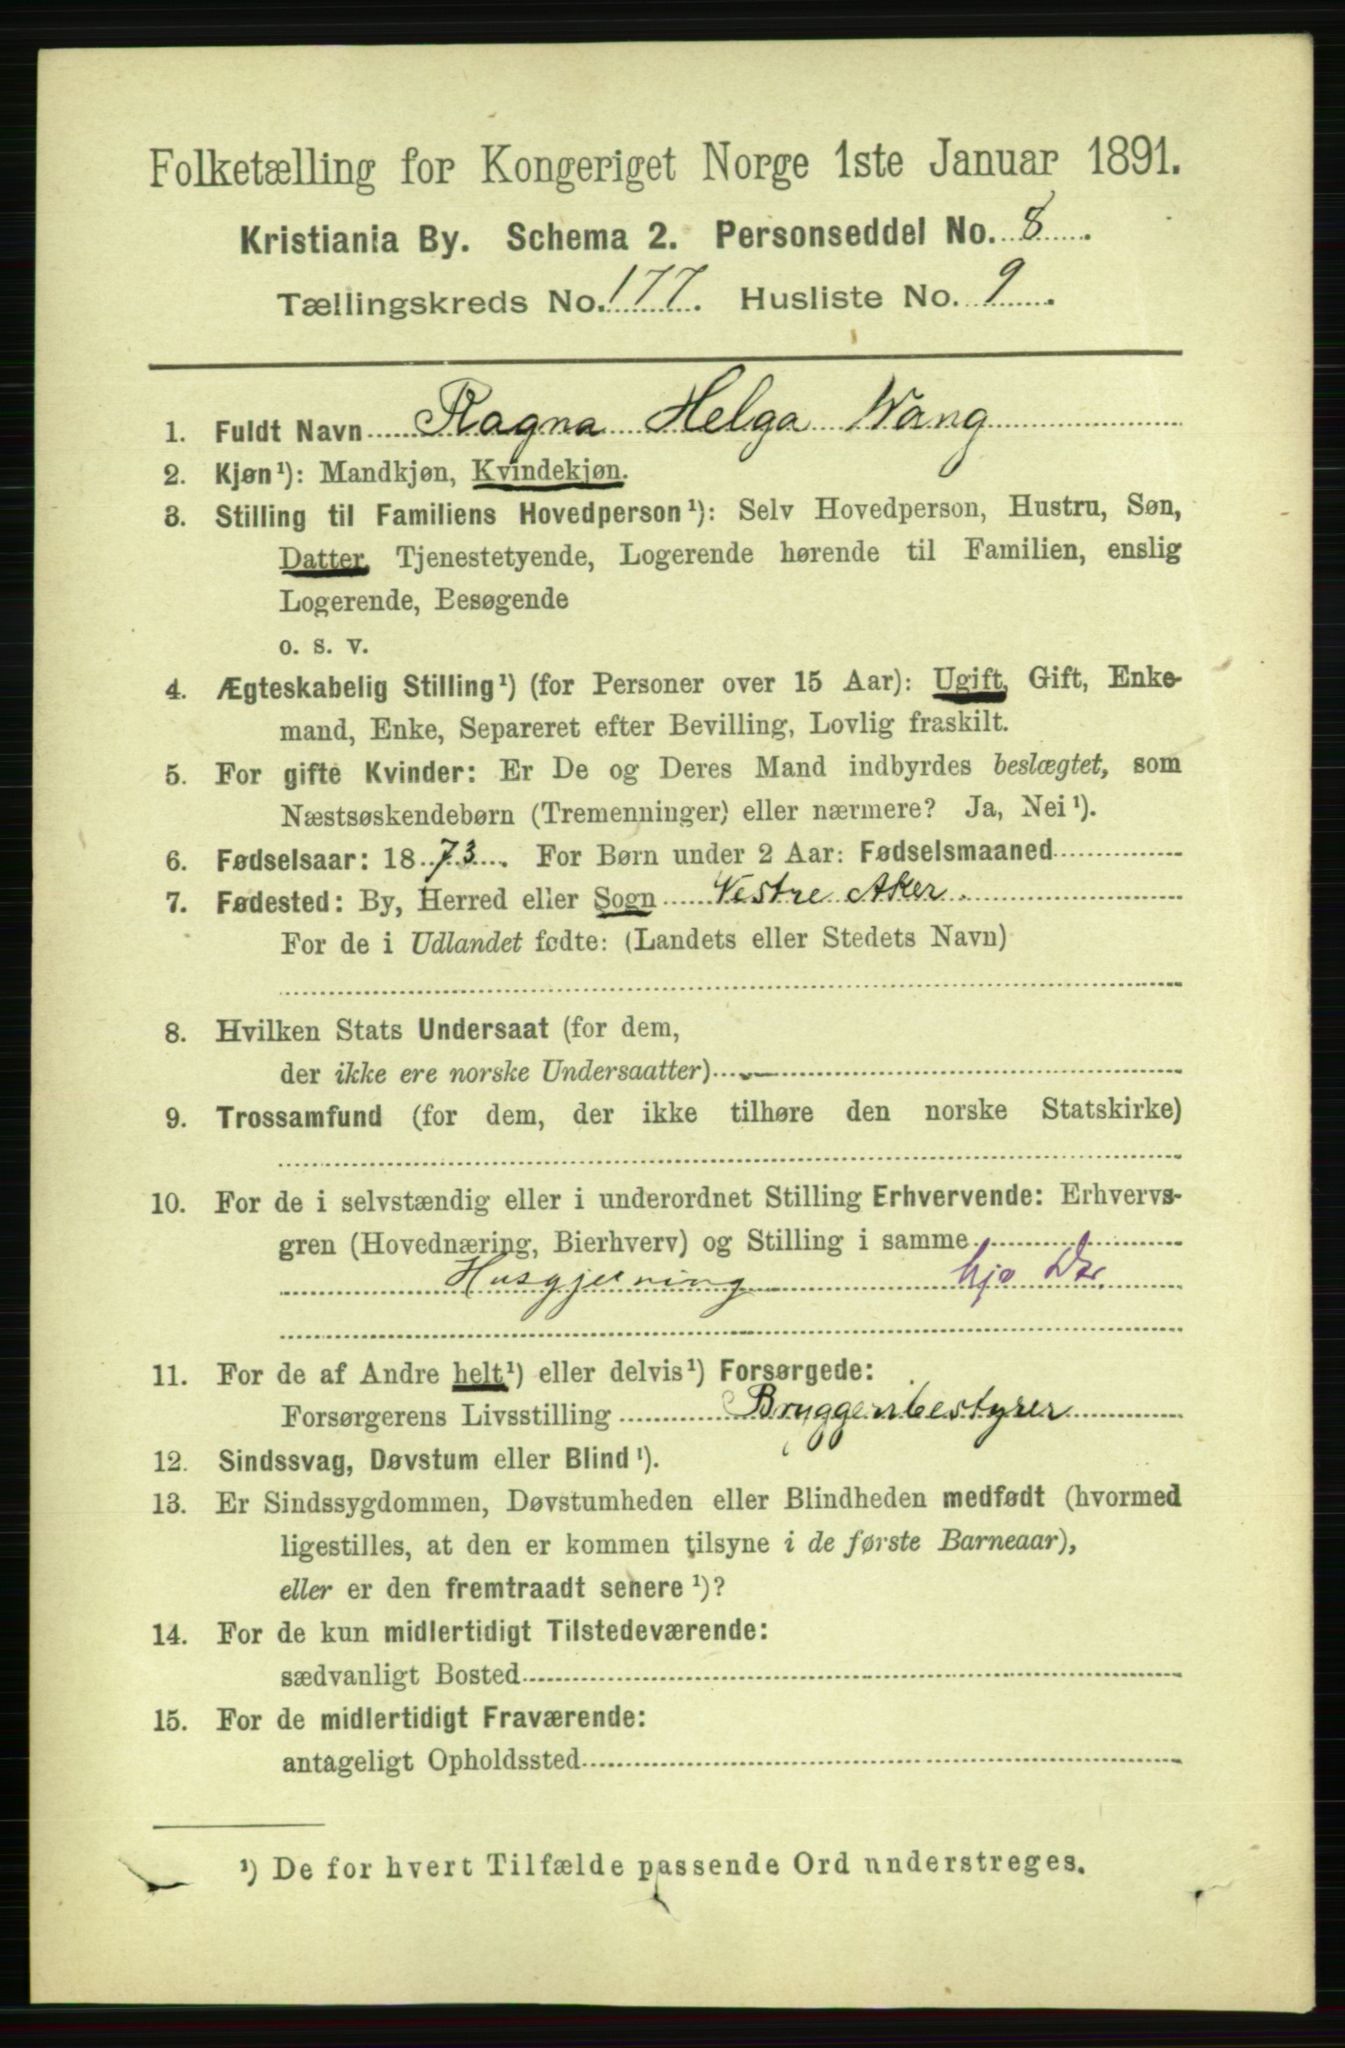 Folketælling for Kongeriget Norge 1ste Januar 1891.
Kristiania By. Schema 2. Personseddel No. 8.
Tællingskreds No. 177. Husliste No. 9.
1. Fuldt Navn Ragna Helga Wang
2. Kjøn¹): Mandkjøn, Kvindekjøn.
3. Stilling til Familiens Hovedperson¹): Selv Hovedperson, Hustru, Søn,
Datter, Tjenestetyende, Logerende hørende til Familien, enslig
Logerende, Besøgende
o. s. v.
4. Ægteskabelig Stilling¹) (for Personer over 15 Aar): Ugift, Gift, Enke-
mand, Enke, Separeret efter Bevilling, Lovlig fraskilt.
5. For gifte Kvinder: Er De og Deres Mand indbyrdes beslægtet, som
Næstsøskendebørn (Tremenninger) eller nærmere? Ja, Nei¹).
6. Fødselsaar: 1873. For Børn under 2 Aar: Fødselsmaaned
7. Fødested: By, Herred eller Sogn Vestre Aker.
For de i Udlandet fødte: (Landets eller Stedets Navn)
8. Hvilken Stats Undersaat (for dem,
der ikke ere norske Undersaatter)
9. Trossamfund (for dem, der ikke tilhøre den norske Statskirke)
10. For de i selvstændig eller i underordnet Stilling Erhvervende: Erhvervs-
gren (Hovednæring, Bierhverv) og Stilling i samme
Husgjerning hjo Dr.
11. For de af Andre helt¹) eller delvis¹) Forsørgede:
Forsørgerens Livsstilling Bryggeribestyrer
12. Sindssvag, Døvstum eller Blind¹).
13. Er Sindssygdommen, Døvstumheden eller Blindheden medfødt (hvormed
ligestilles, at den er kommen tilsyne i de første Barneaar),
eller er den fremtraadt senere¹)?
14. For de kun midlertidigt Tilstedeværende:
sædvanligt Bosted
15. For de midlertidigt Fraværende:
antageligt Opholdssted
¹) De for hvert Tilfælde passende Ord understreges.